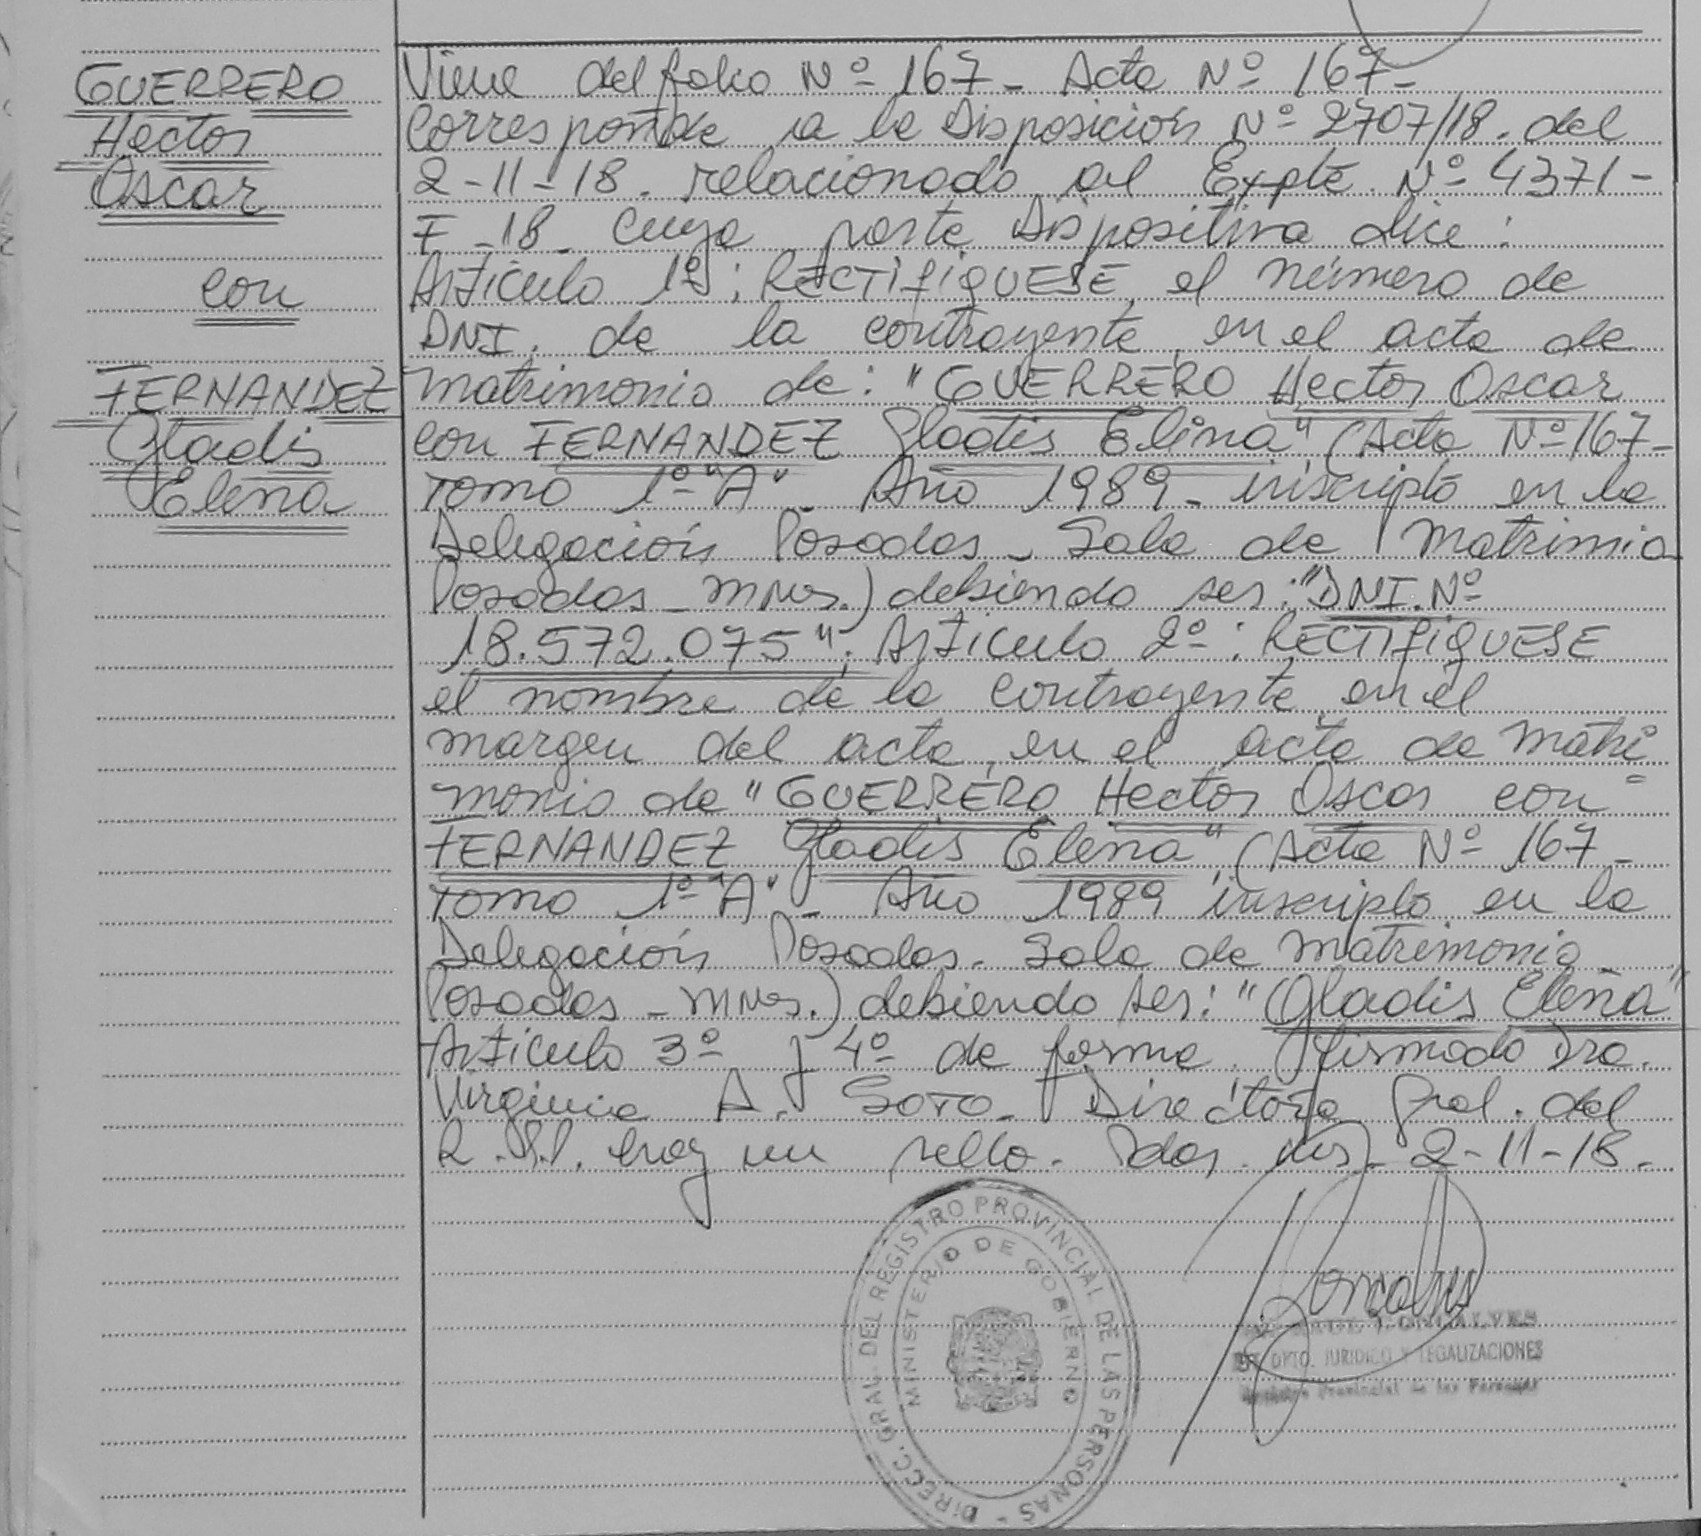 GUERRERO
Hector
Oscar
con
FERNANDEZ
Gladis
Elena
Viene del folio Nº 167 - Acta Nº 167 -
Corresponde a la Disposición Nº 2707/18. del
2-11-18. relacionado al Expte. Nº 4371-
F-18. Cuya parte Dispositiva dice:
Artículo 1º: RECTIFIQUESE, el número de
DNI. de la contrayente, en el acta de
matrimonio de: "GUERRERO Hector Oscar
con FERNANDEZ Gladis Elena", (Acta Nº 167-
Tomo 1º "A" - Año 1989 - inscripto en la
Delegación Posadas - Sala de Matrimio
Posadas - Mnes.) debiendo ser: "DNI. Nº
18.572.075"; Artículo 2º: RECTIFIQUESE
el nombre de la contrayente, en el
margen del acta, en el acta de Matri
monio de "GUERRERO Hector Oscar con
FERNANDEZ Gladis Elena", (Acta Nº 167 -
Tomo 1º "A" - Año 1989 inscripto en la
Delegación Posadas - Sala de Matrimonio
Posadas - Mnes.) debiendo ser: "Gladis Elena"
Artículo 3º y 4º de forma. firmado Dra.
Virginia A. Soto. Directora Gral. del
R.P.P. hay un sello. Pdas. Mnes. 2-11-18.
DIRECC. GRAL. DEL REGISTRO PROVINCIAL DE LAS PERSONAS -
MINISTERIO DE GOBIERNO
GONCALVES
DPTO. JURIDICO Y LEGALIZACIONES
Provincial de las Personas